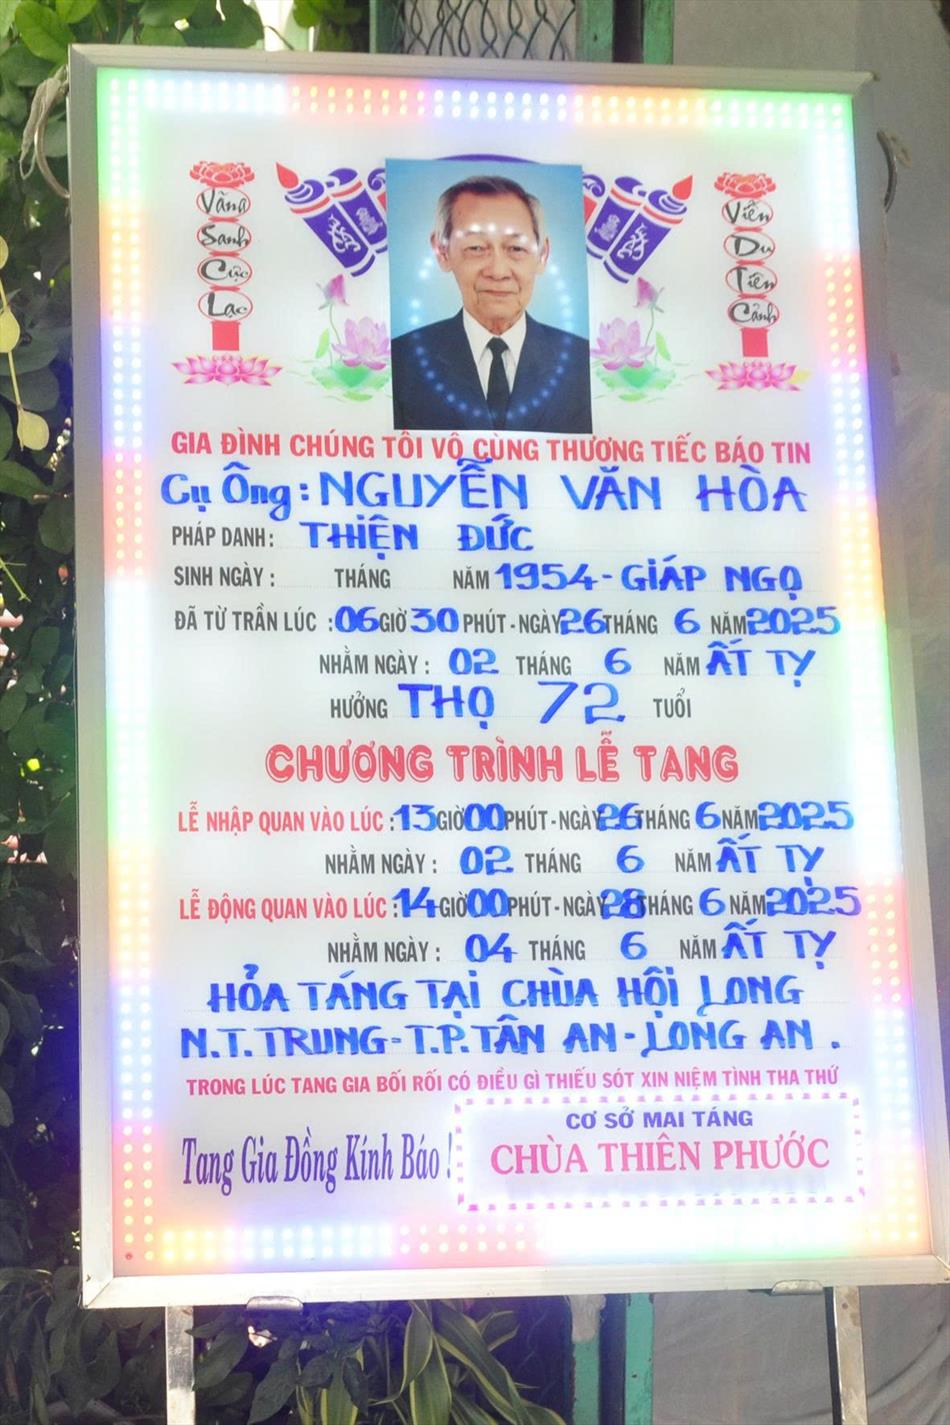 Vãng
Sanh
Cực
Lạc
Viên
Du
Tiên
Cảnh
GIA ĐÌNH CHÚNG TÔI VÔ CÙNG THƯƠNG TIẾC BÁO TIN
Cụ Ông: NGUYỄN VĂN HÒA
PHÁP DANH: THIỆN ĐỨC
SINH NGÀY: THÁNG NĂM 1954 - GIÁP NGỌ
ĐÃ TỪ TRẦN LÚC: 06 GIỜ 30 PHÚT - NGÀY 26 THÁNG 6 NĂM 2025
NHẰM NGÀY: 02 THÁNG 6 NĂM ẤT TỴ
HƯỞNG THỌ 72 TUỔI
CHƯƠNG TRÌNH LỄ TANG
LỄ NHẬP QUAN VÀO LÚC: 13 GIỜ 00 PHÚT - NGÀY 26 THÁNG 6 NĂM 2025
NHẰM NGÀY: 02 THÁNG 6 NĂM ẤT TỴ
LỄ ĐỘNG QUAN VÀO LÚC: 14 GIỜ 00 PHÚT - NGÀY 28 THÁNG 6 NĂM 2025
NHẰM NGÀY: 04 THÁNG 6 NĂM ẤT TỴ
HỎA TÁNG TẠI CHÙA HỘI LONG
N.T.TRUNG - T.P.TÂN AN - LONG AN.
TRONG LÚC TANG GIA BỐI RỐI CÓ ĐIỀU GÌ THIẾU SÓT XIN NIỆM TÌNH THA THỨ
Tang Gia Đồng Kính Báo!
CƠ SỞ MAI TÁNG
CHÙA THIÊN PHƯỚC